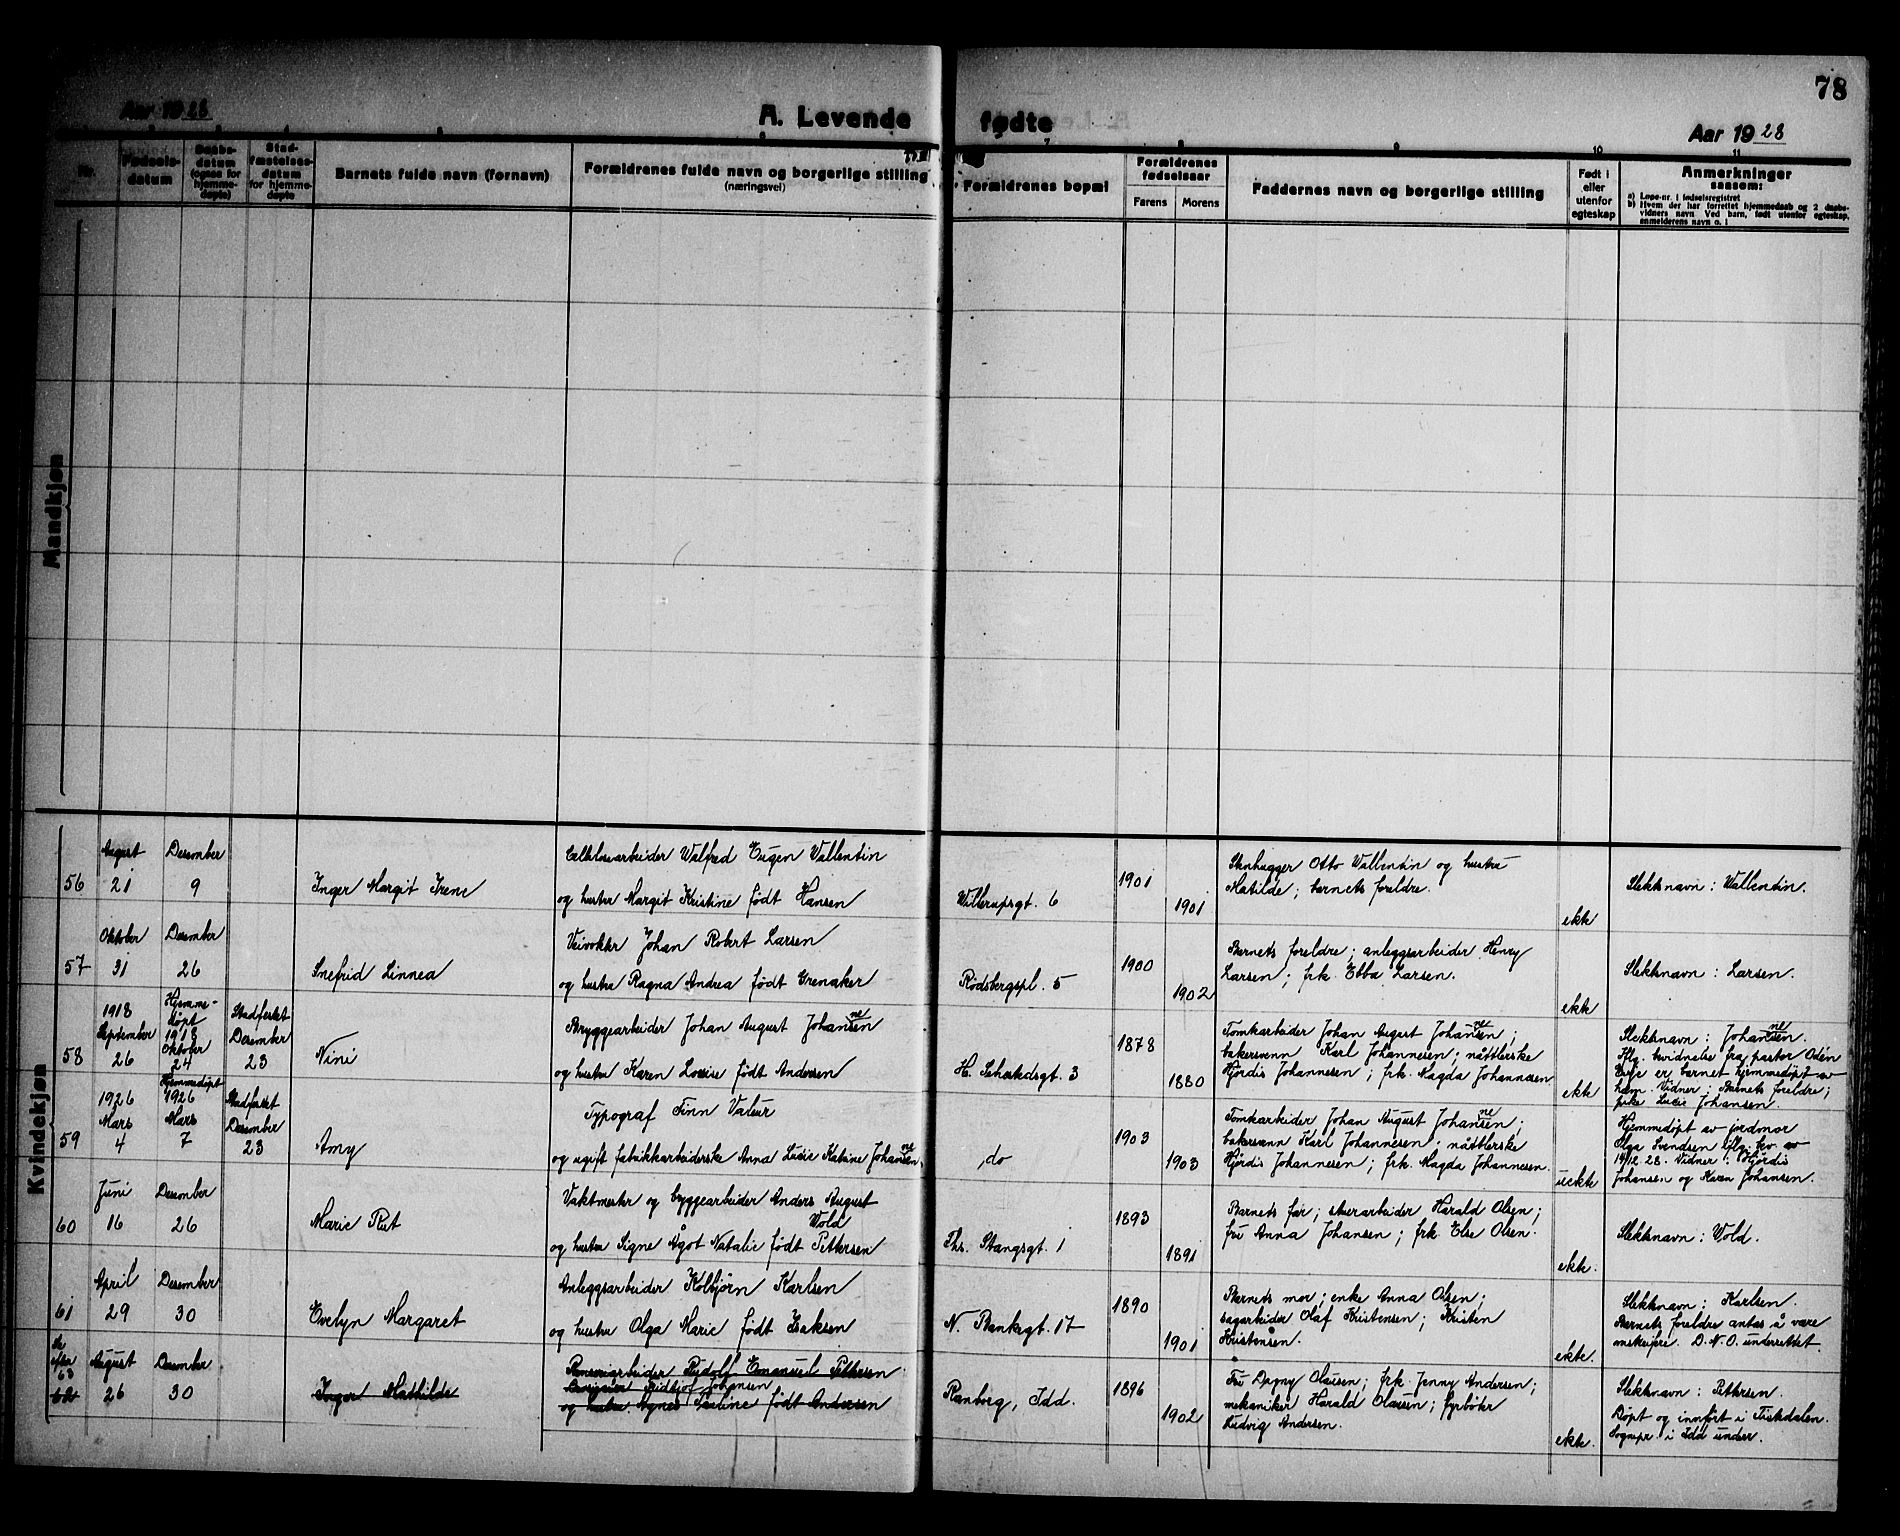 78
Aar 1928
A. Levende fødte
Aar 1928
Nr.
Fødsels-
datum
Daabs-
datum
(ogsaa for
hjemme-
døpte)
Stad-
fæstelses-
datum
for hjemme-
døpte
Barnets fulde navn (fornavn)
Forældrenes fulde navn og borgerlige stilling
(næringsvei)
Forældrenes bopæl
Forældrenes
fødselsaar
Farens
Morens
Faddernes navn og borgerlige stilling
Født i
eller
utenfor
egteskap
Anmerkninger
saasom:
a) Løpe-nr. i fødselsregistret
b) Hvem der har forrettet hjemmedaab og 2 daabs-
vidners navn. Ved barn, født utenfor egteskap,
anmelderens navn o. l
7
8
9
10
11
Mandkjøn
Kvindekjøn
56
August
21
Desember
9
Inger Margit Irene
Cellulosearbeider Walfred Eugen Wallentin
og hustru Margit Kristine født Hansen
Wallerupsgt. 6
1901
1901
Stenhugger Otto Wallentin og hustru
Matilde; barnets foreldre.
ekte
Slektsnavn: Wallentin.
57
Oktober
31
Desember
26
Snefrid Linnea
Veivokter Johan Robert Larsen
og hustru Ragna Andrea født Grenaker
Rødsbergspl. 5
1900
1902
Barnets foreldre; anleggsarbeider Henry
Larsen; frk. Ebba Larsen.
ekte
Slektsnavn: Larsen.
58
1918
September
26
Hjemme-
døpt
1918
Oktober
24
Stadfestet
Desember
23
Nini
Bryggearbeider Johan August Johansen
ne
og hustru Karen Lovise født Andersen
H. Schultzdsgt. 3
1878
1880
Tomtearbeider Johan August Johansen;
ne
bakersvenn Karl Johannesen; nåttlerske
Hjørdis Johannesen; frk. Magda Johannesen
ekte
Slektsnavn: Johansen.
ne
Iflg. bevidnelse fra pastor Odén
er barnet hjemmedøpt av
ham. Vidner: Barnets foreldre;
frke Lucie Johansen.
59
1926
Mars
4
Hjemmedøpt
1926
Mars
7
Stadfestet
Desember
23
Amy
Typograf Finn Valeur
og ugift fabrikkarbeiderske Anna Lucie Katrine Johansen.
ne
do
1903
1903
Tomtearbeider Johan August Johansen;
ne
bakersvenn Karl Johannesen; nåttlerske
Hjørdis Johannesen; frk. Magda Johannesen.
uekte
Hjemmedøpt av jordmor
Olga Svendsen iflg. bev. av
19/12 28. Vidner: Hjørdis
Johansen og Karen Johansen.
60
Juni
16
Desember
26
Marie Rut
Vaktmester og bryggearbeider Anders August
Wold
og hustru Signe Ågot Natalie født Pettersen
Ths. Stangsgt. 1
1893
1891
Barnets far; skoarbeider Harald Olsen;
fru Anna Johansen; frk. Else Olsen.
ekte.
Slektsnavn: Wold.
61
April
29
Desember
30
Evelyn Margaret
Anleggsarbeider Kolbjørn Karlsen
og hustru Olga Marie født Isaksen
N. Bankegt. 17
1890
1901
Barnets mor; enke Anna Olsen;
sagarbeider Olaf Kristensen; Kristen
Kristensen.
ekte.
Slektsnavn: Karlsen.
Barnets foreldre antas å være
D. N. O. underrettet.
Se
efter
63
62
August
26
Desember
30
Inger Mathilde
Rudolf Emanuel Pettersen
Fridtjof Johansen
og hustru Agnes Pauline født Andersen
Ranberg, Idd.
1896
1902
Fru Dagny Olausen; frk. Jenny Andersen;
mekaniker Harald Olausen; fyrbøter
Ludvig Andersen.
ekte.
Slektsnavn: Pettersen.
Døpt og innført i Tistedalen.
Sognepr. i Idd underr.